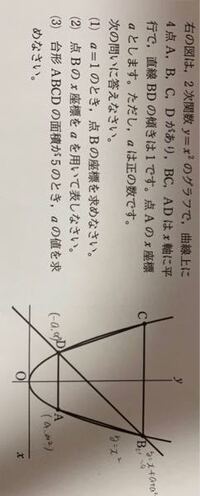 右の図は，2次関数 y=x² のグラフで，曲線上に
4点 A，B，C，Dがあり，BC，ADはx軸に平
行で，直線BDの傾きは1です。点Aのx座標
をaとします。ただし，aは正の数です。
次の問いに答えなさい。
(1) a=1のとき，点Bの座標を求めなさい。
(2) 点Bのx座標をaを用いて表しなさい。
(3) 台形ABCDの面積が5のとき，aの値を求
めなさい。
y
C
B
y=x+a+a²
y=x²
(-a,a²)
D
A
(a,a²)
O
x